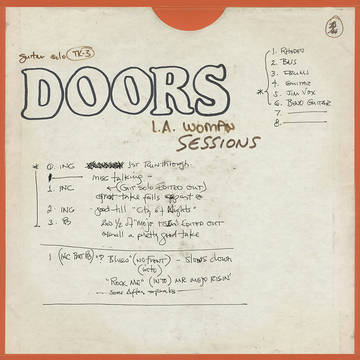 guitar solo TK-3
DOORS
L.A. WOMAN
SESSIONS
1. RHODES
2. BASS
3. DRUMS
4. GUITAR
* 5. JIM VOX
6. BEND GUITAR
7.
8.
* 0. INC 1st Run through.
misc talking -
1. INC (GUIT SOLO EDITED OUT)
great take falls apart
2. INC good till "City of Nights"
3. 2nd 1/2 of "MOJO RISIN" EDITED OUT
overall a pretty good take
1 (INC BUT) "? BLUES" (NO FRONT) - SLOWS DOWN
(INTO)
"ROCK ME" (INTO) MR MOJO RISIN'